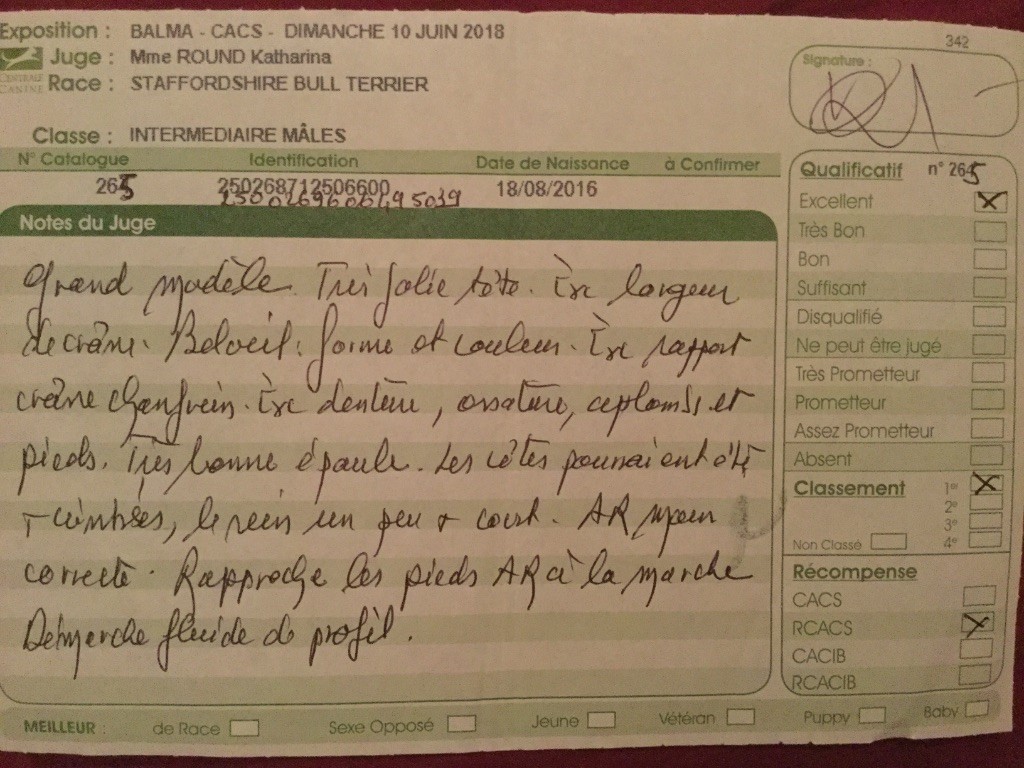 342
Exposition : BALMA - CACS - DIMANCHE 10 JUIN 2018
Juge : Mme ROUND Katharina
CENTRALE CANINE
Race : STAFFORDSHIRE BULL TERRIER
Classe : INTERMEDIAIRE MÂLES
N° Catalogue Identification Date de Naissance à Confirmer
265 250268712506600 18/08/2016
Notes du Juge
Grand modèle. Très jolie tête. Exc largeur
de crâne. Bel oeil : forme et couleur. Exc rapport
crâne chanfrein. Exc denture, ossature, aplombs et
pieds. Très bonne épaule. Les côtes pourraient être
+ cintrées, le rein un peu + court. AR
correcte. Rapproche les pieds AR à la marche
Démarche fluide de profil.
Signature :
Qualificatif n° 265
Excellent X
Très Bon
Bon
Suffisant
Disqualifié
Ne peut être jugé
Très Prometteur
Prometteur
Assez Prometteur
Absent
Classement 1er X
2e
3e
Non Classé 4e
Récompense
CACS
RCACS X
CACIB
RCACIB
MEILLEUR : de Race Sexe Opposé Jeune Vétéran Puppy Baby